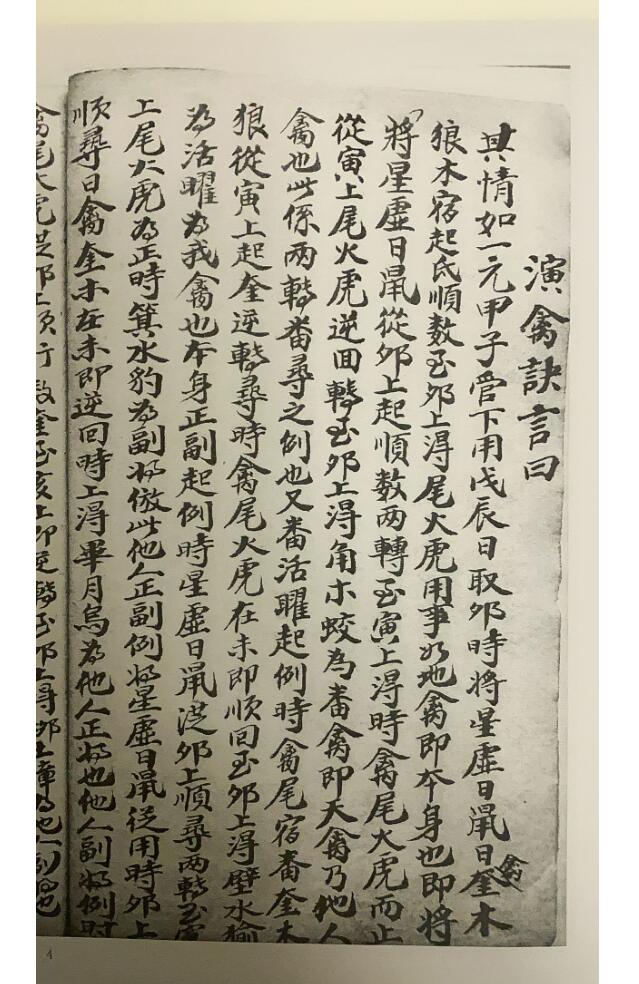 演禽訣言曰
其情如一元甲子管下用戊辰日取夘時将星虚日鼠日禽奎木
狼木宿起氐順数至夘上得尾火虎用事為地禽即本身也即将
将星虚日鼠從夘上起順数两轉至寅上得時禽尾火虎而止
從寅上尾火虎逆回轉至夘上得角木蛟為番禽即天禽乃他人
禽也此係两轉番尋之例也又番活曜起例時禽尾宿番奎木
狼從寅上起奎逆轉尋時禽尾火虎在未即順回至夘上得壁水㺄
為活曜為我禽也本身正副起例時星虚日鼠從夘上順尋两轉至寅
上尾火虎為正時箕水豹為副將倣此他人正副例將星虚日鼠從用時夘上
順尋日禽奎木在未即逆回時上得畢月烏為他人正將也他人副將例時
禽尾火虎從夘上順行数奎至亥上即逆轉至夘上得